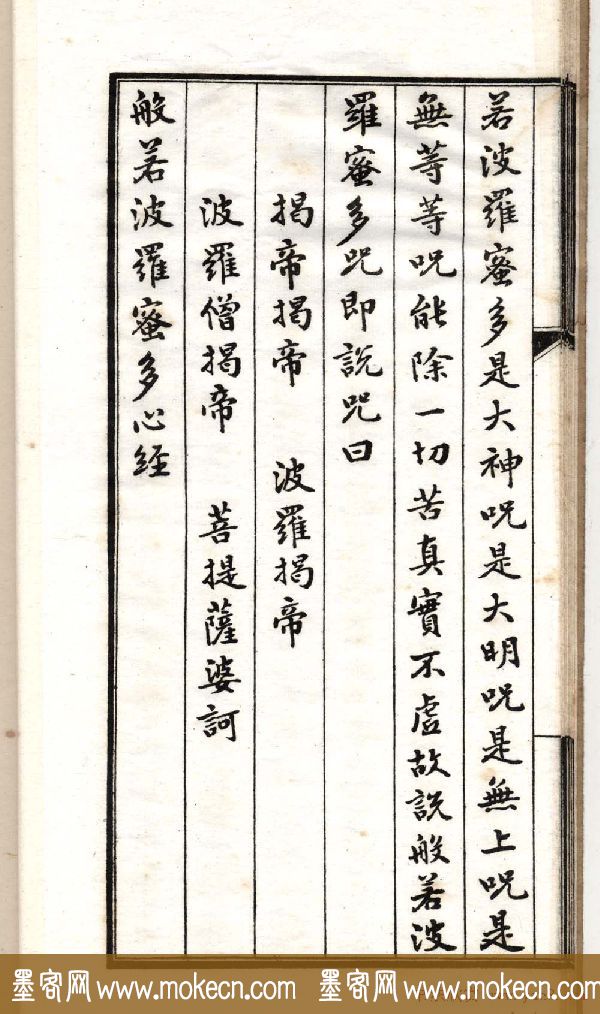 若波羅蜜多是大神咒是大明咒是無上咒是
無等等咒能除一切苦真實不虛故說般若波
羅蜜多咒即說咒曰
揭帝揭帝 波羅揭帝
波羅僧揭帝 菩提薩婆訶
般若波羅蜜多心経
墨客网 www.mokecn.com 墨客网 www.mokecn.com